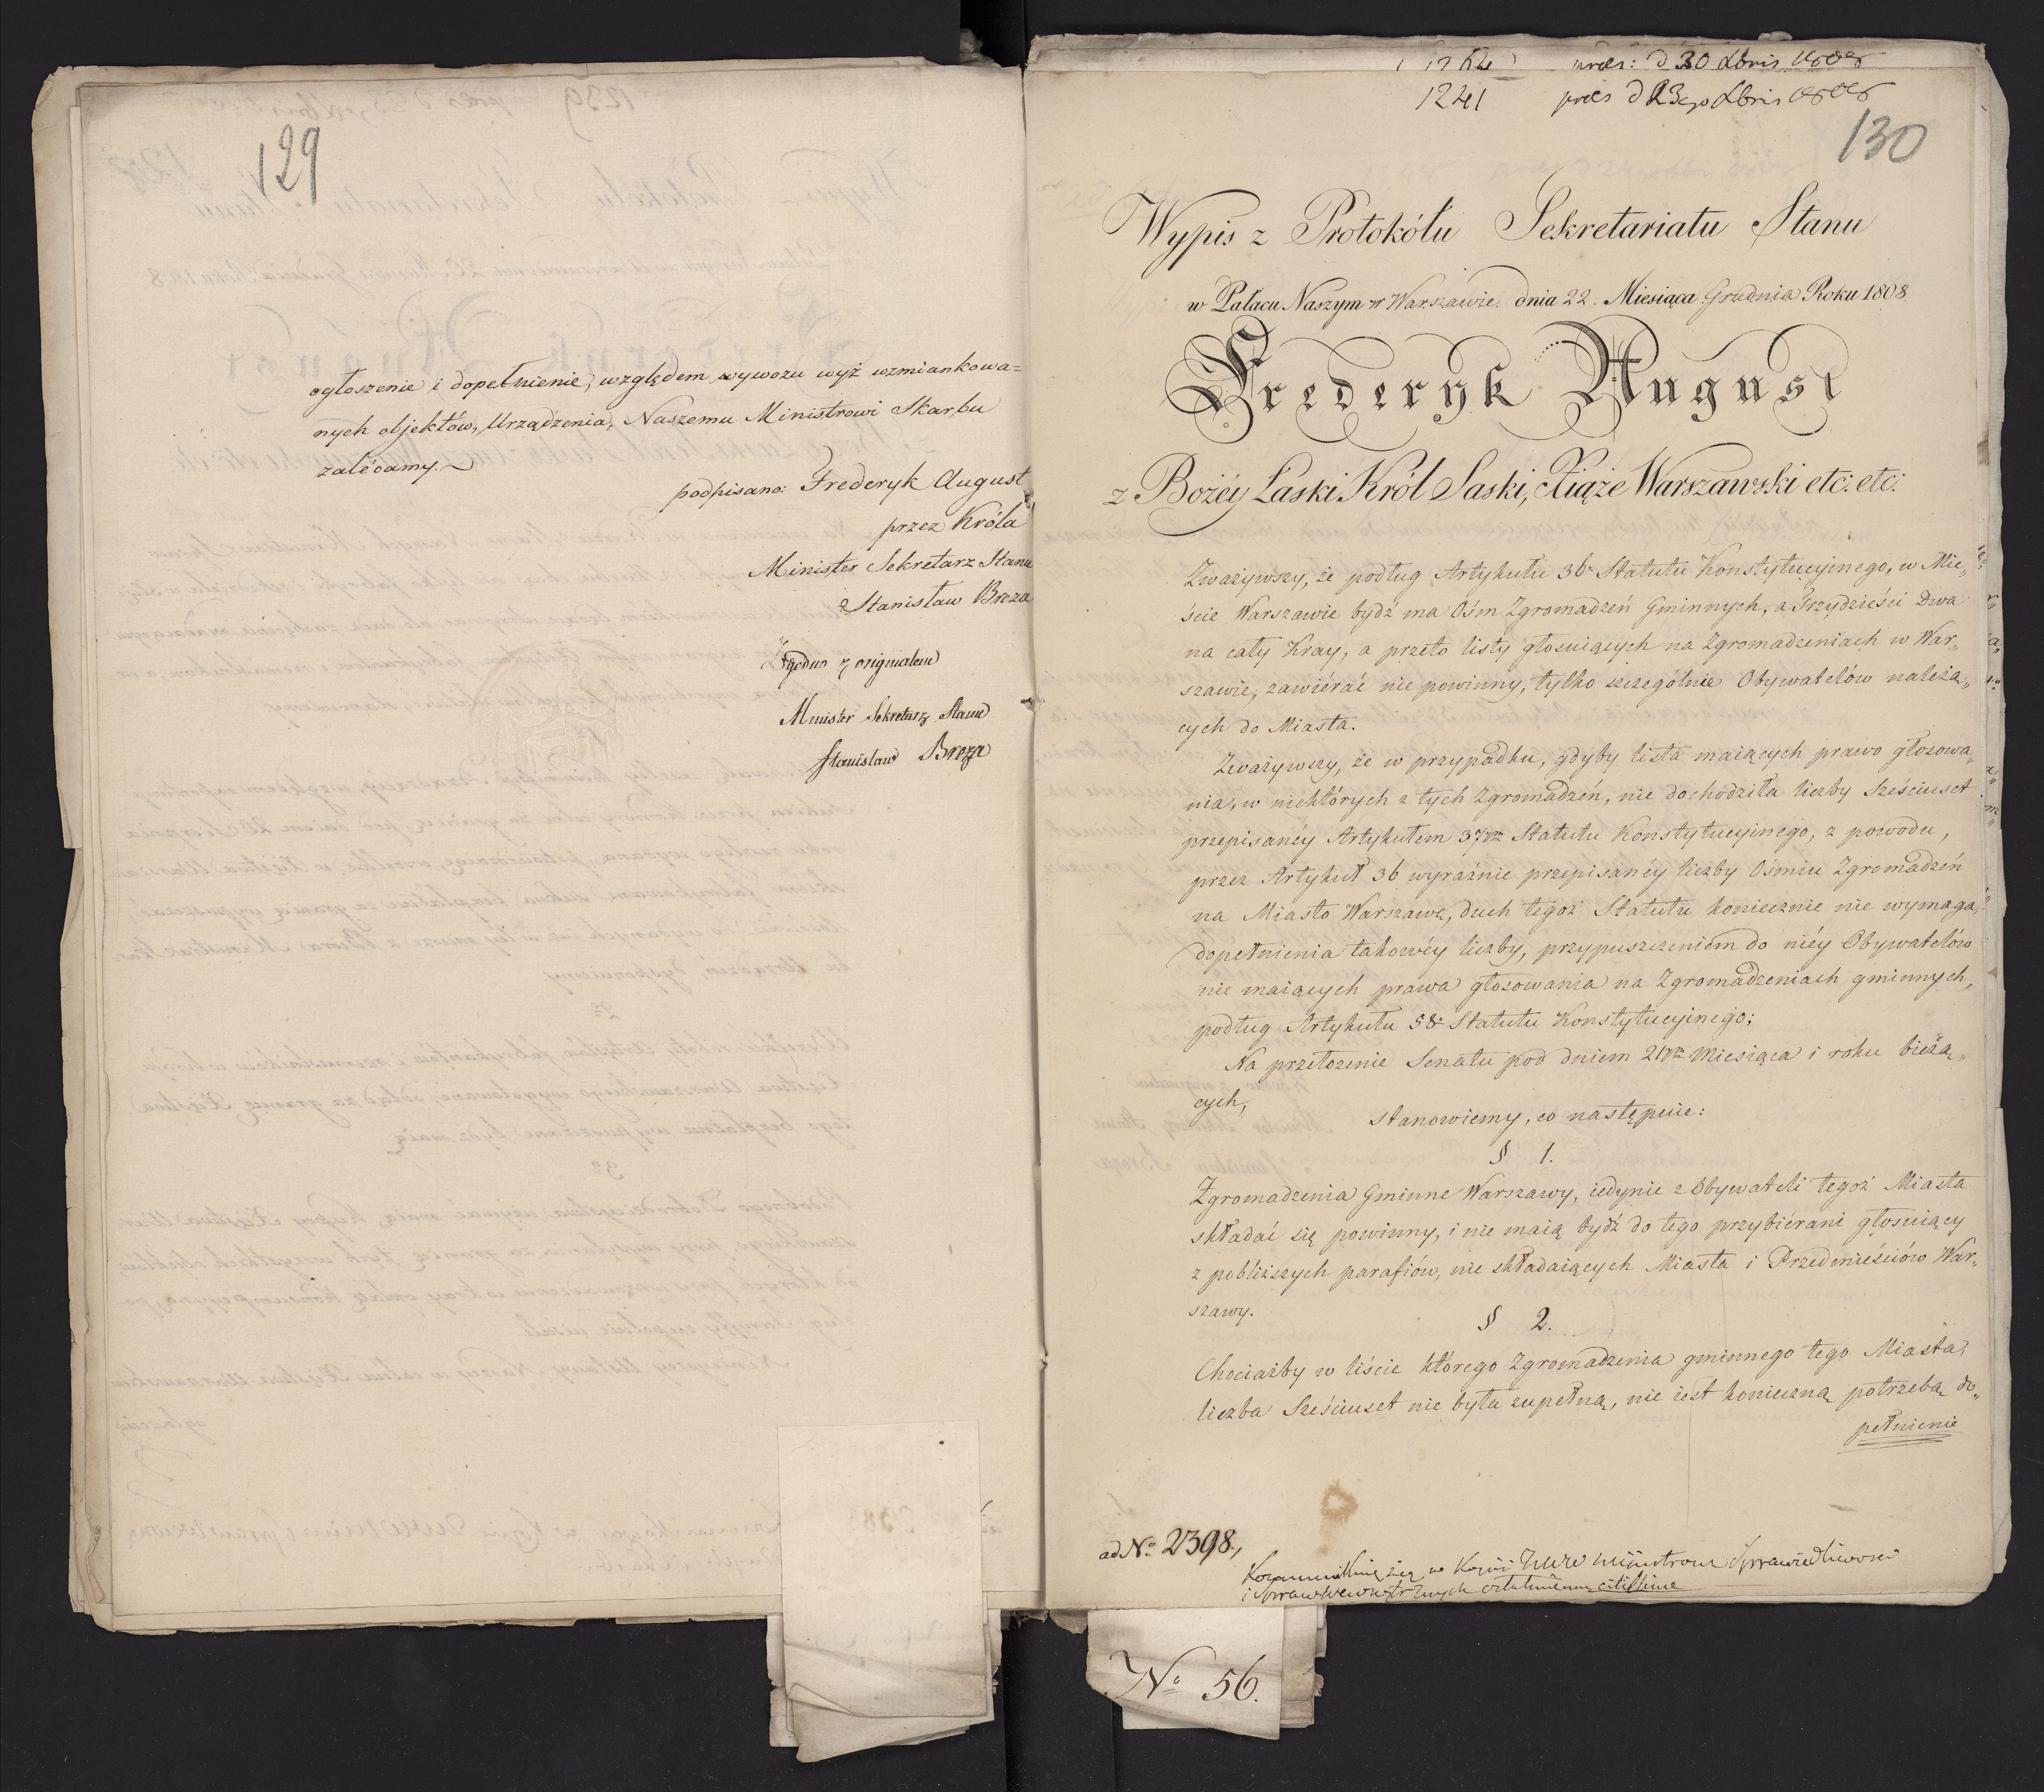 129
ogłoszenie i dopełnienie, względem wywozu wyż wzmiankowa=
nych objektów, Urządzenia, Naszemu Ministrowi Skarbu
zalécamy.
podpisano: Frederyk August
przez Króla
Minister Sekretarz Stanu
Stanisław Breza
Zgodno z originałem
Minister Sekretarz Stanu
Stanisław Breza
1241
130
Wypis z Protokółu Sekretariatu Stanu
w Pałacu Naszym w Warszawie dnia 22. Miesiąca Grudnia Roku 1808
Frederyk August
z Bożéy Łaski Król Saski, Xiąże Warszawski etc: etc:
Zważywszy, że podług Artykułu 36. Statutu Konstytucyinego, w Mie„
ście Warszawie bydź ma Ośm Zgromadzeń Gminnych, a Trzydzieści Dwa
na cały Kray, a przeto listy głosuiących na Zgromadzeniach w War„
szawie, zawiérać nie powinny, tylko szczególnie Obywatelów należą„
cych do Miasta.
Zważywszy, że w przypadku, gdyby lista maiących prawo głosowa„
nia, w niektórych z tych Zgromadzeń, nie dochodziła liczby Sześciuset
przepisanéy Artykułem 37ym Statutu Konstytucyinego, z powodu,
przez Artykuł 36 wyraźnie przepisanéy liczby Ośmiu Zgromadzeń
na Miasto Warszawę, duch tegoż Statutu koniecznie nie wymaga,
dopełnienia takowéy liczby, przypuszczeniem do niéy Obywatelów
nie maiących prawa głosowania na Zgromadzeniach gminnych,
podług Artykułu 58. Statutu Konstytucyinego;
Na przełożenie Senatu pod dniem 21ym Miesiąca i roku bieżą„
cych,
stanowiemy, co następuie:
§ 1.
Zgromadzenia Gminne Warszawy, iedynie z Obywateli tegoż Miasta
składać się powinny, i nie maią bydź do tego przybiérani głosuiący
z pobliższych parafiów, nie składaiących Miasta i Przedmieściów War„
szawy.
§ 2.
Chociażby w liście którego Zgromadzenia gminnego tego Miasta,
liczba Sześciuset nie była zupełną, nie iest konieczną potrzebą do„
pełnienie
ad No 2398.,
No 56.